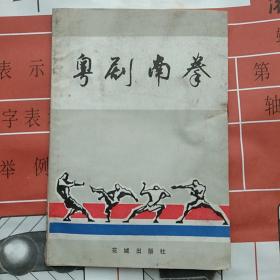 粤剧南拳
花城出版社
表示
字表
举例
第
轴